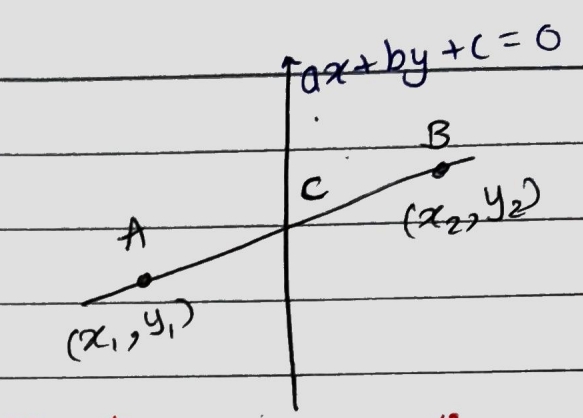 ax+by+c=0
B
C
(x₂,y₂)
A
(x₁,y₁)